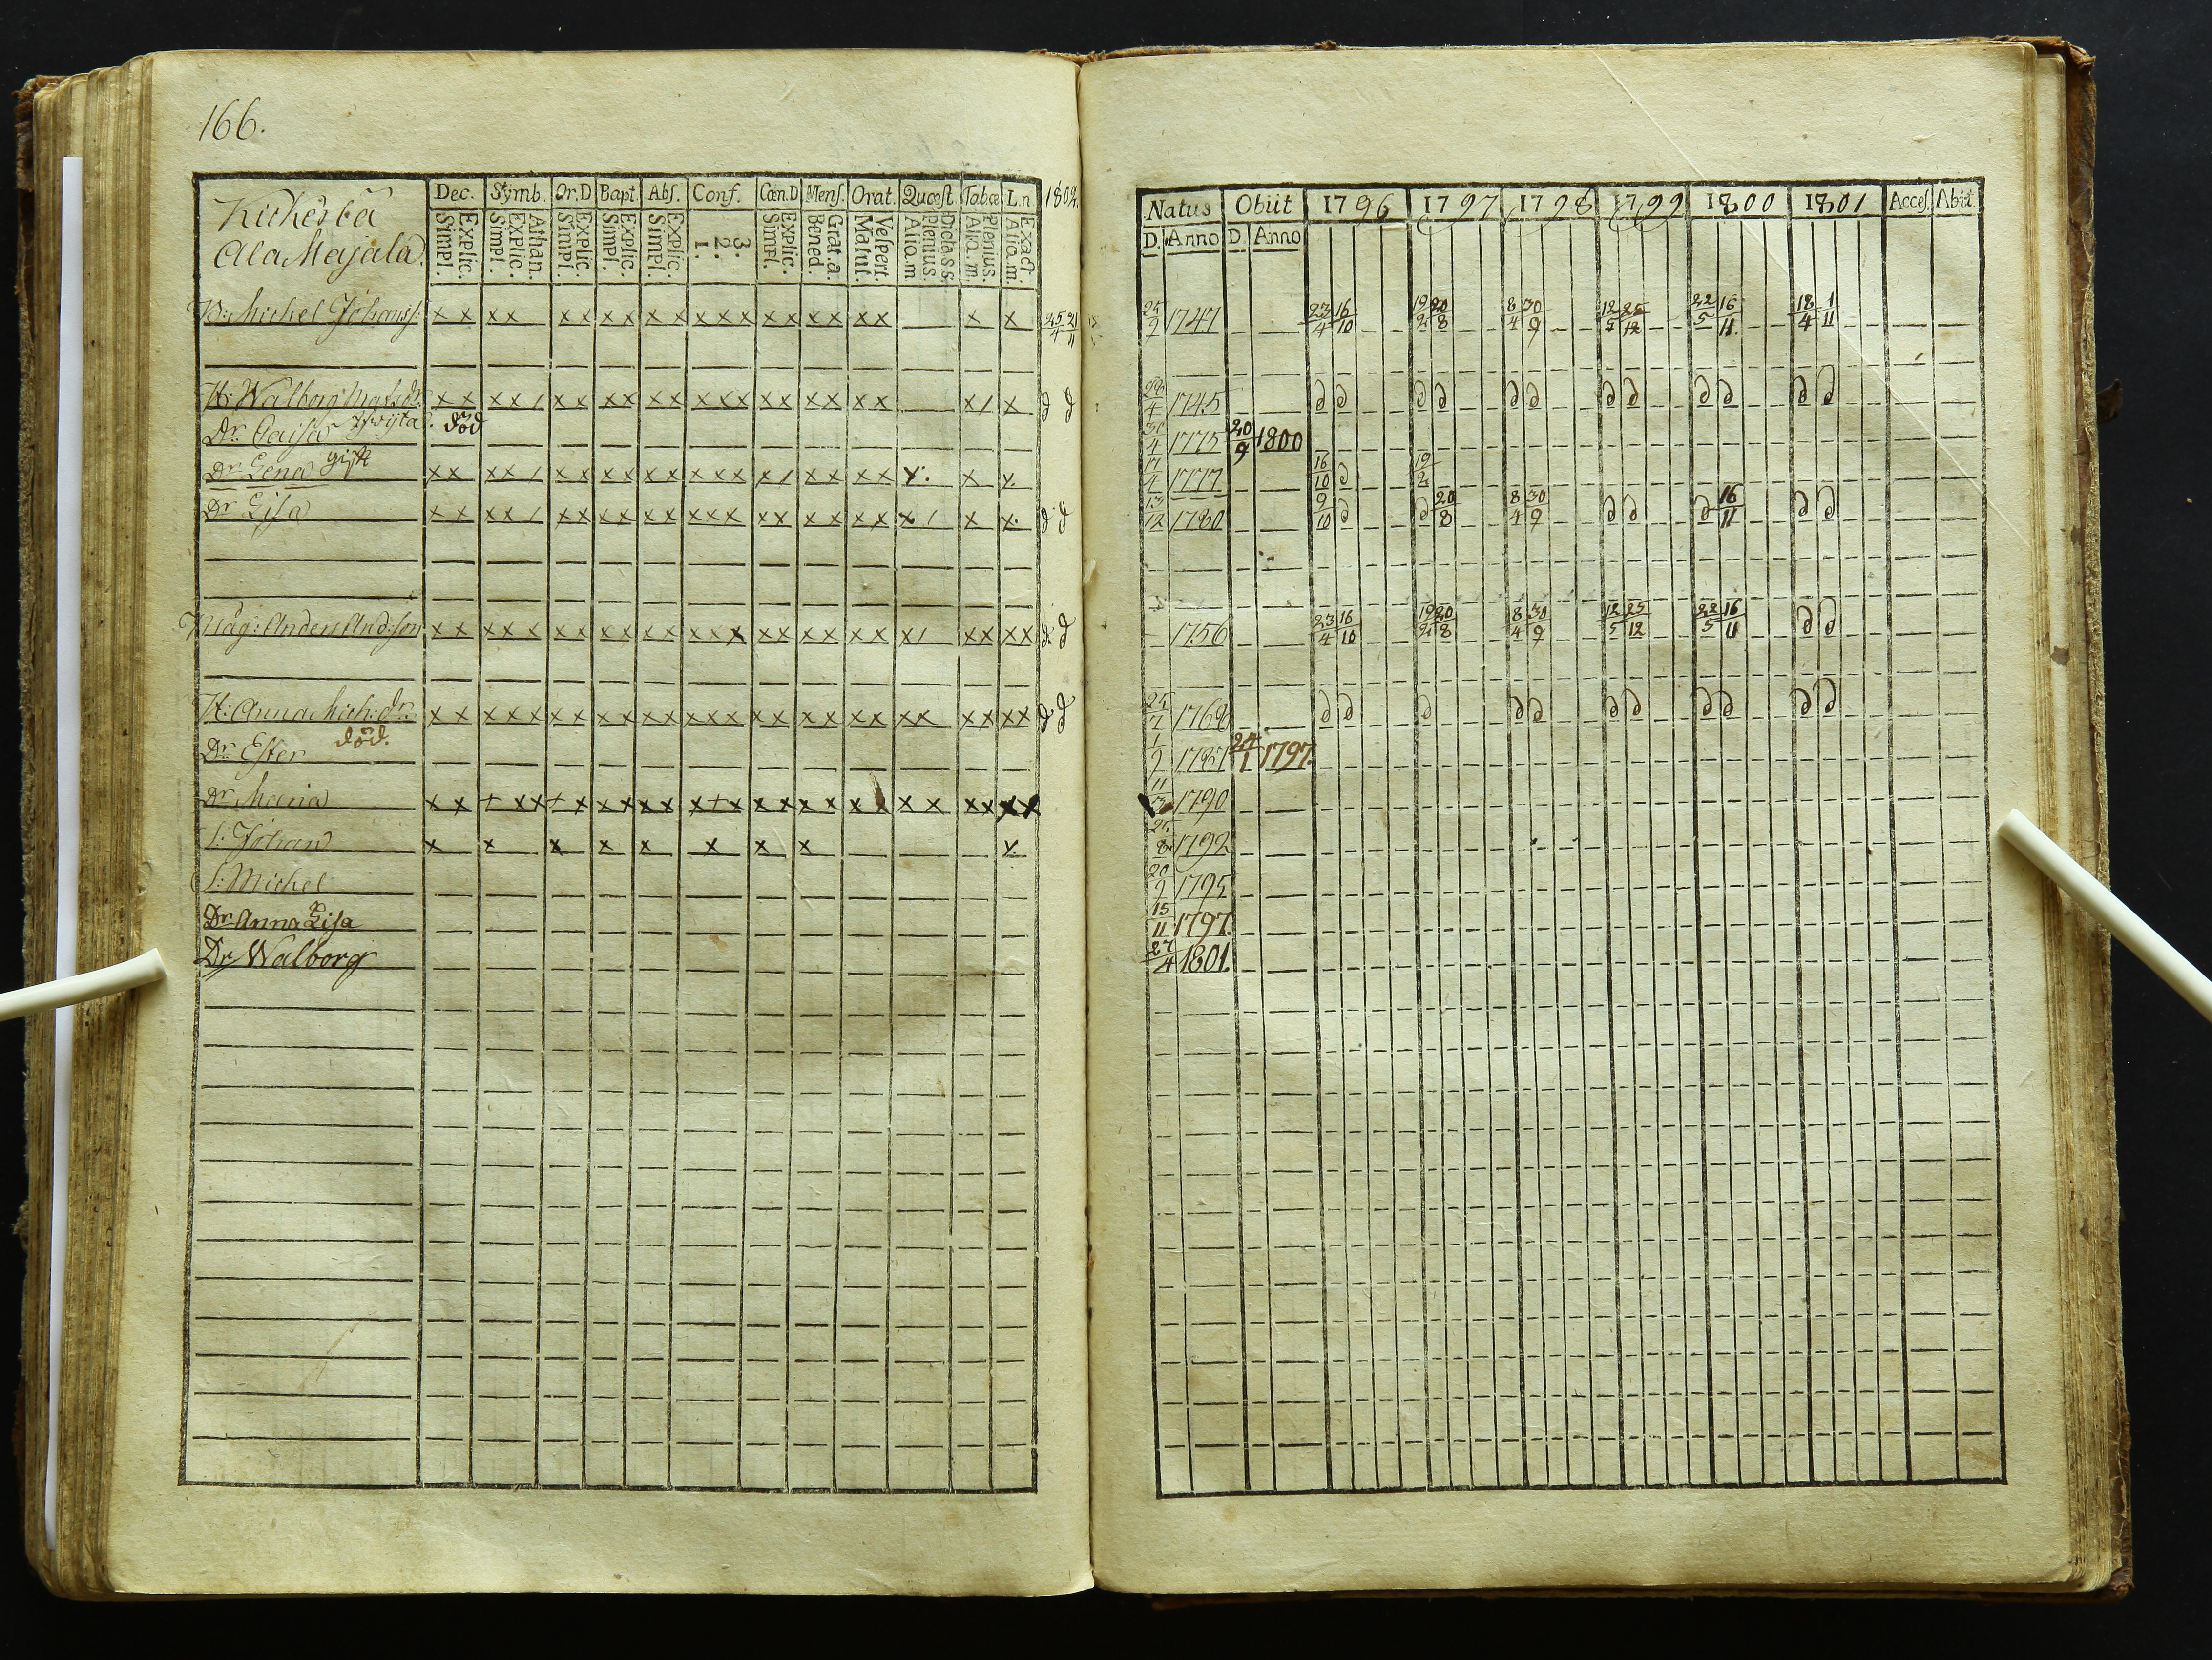 166.
Dec. Symb. Or.D Bapt. Abs. Conf. Cœn.D Mens. Orat. Quæst. Tabœ L.n 1802.
Explic. Simpl. Athan. Explic. Simpl. Explic. Simpl. Explic. Simpl. Explic. Simpl. 3. 2. 1. Explic. Simpl. Grat.a. Bened. Vespert. Matut. Dict.s.s. Plenius. Aliq.m. Plenius. Aliq.m. Exact. Aliq.m.
Ala Majala
B: Michel Johanss: x x x x x x x x x x x x x x x x x x x x x x
H: Walborg Matsdr x x x x / x x x x x x x x x x x x x x x x / x d d
Dr. Caisa död
Dr. Lena gift x x x x / x x x x x x x x x x / x x x x x x x
Dr Lisa x x x x / x x x x x x x x x x x x x x x x / x x d d
Måg: Anders And:son x x x x x x x x x x x x x x x x x x x x / x x x x d d
H: Anna Mich: dr. x x x x x x x x x x x x x x x x x x x x x x x x x d d
Dr. Ester död.
Dr Maria x x + x x + x x x x x x + x x x x x x x x x x x x x
S: Johan x x x x x x x x x
S: Michel
Dr. Anna Lisa
Dr Walborg
Natus Obiit 1796 1797 1798 1799 1800 1801 Acces. Abiit
D. Anno D. Anno
25/9 1747 23/4 16/10 19/2 20/8 8/4 30/9 12/5 25/12 22/5 16/11 18/4 1/11
1745 d d d d d d d d d d d d
1775 20/9 1800
17/4 1777 16/10 d 19/2
13/12 1780 9/10 d d 20/8 8/4 30/9 d d d 16/11 d d
1756 23/4 16/10 19/2 20/8 8/4 30/9 12/5 25/12 22/5 16/11 d d
25/7 1768 d d d d d d d d d d d
1/9 1787 24/1 1797.
1790
1792
20/9 1795
15/11 1797.
27/4 1801.